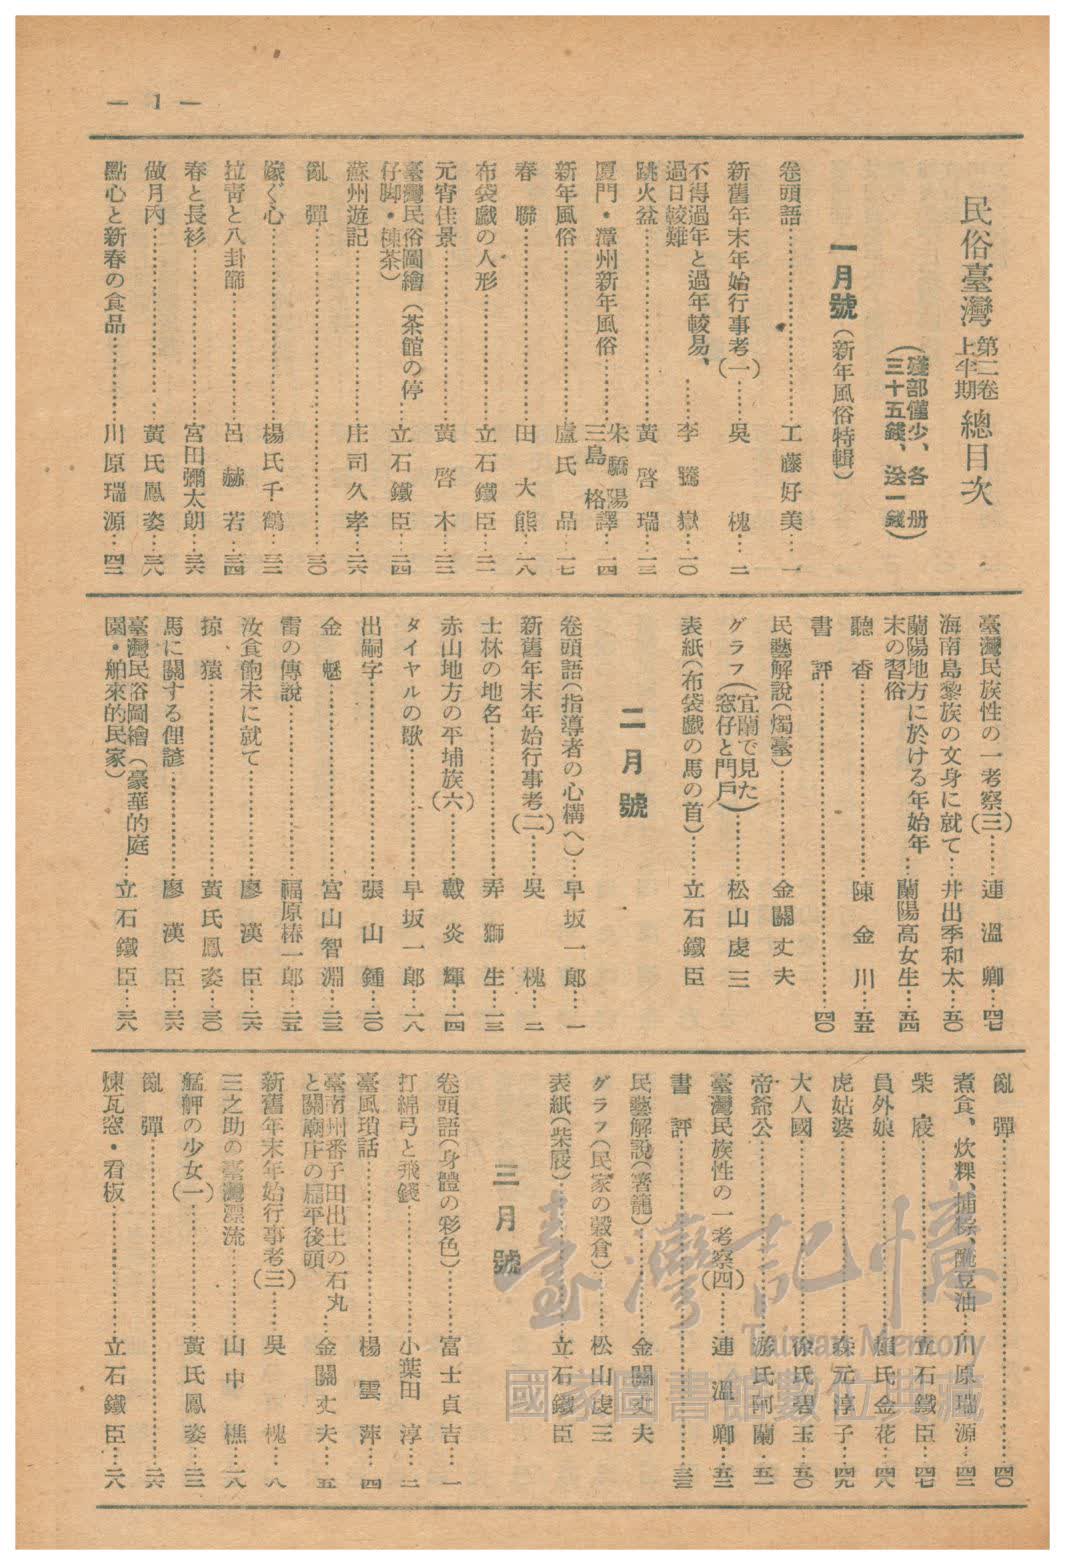 — 1 —
民俗臺灣 第二卷 上半期 總目次
(殘部僅少、各册
三十五錢、送一錢)
一月號(新年風俗特輯)
卷頭語……工藤好美…一
新舊年末年始行事考(一)……吳槐…二
不得過年と過年較易、
過日較難……李騰嶽…一〇
跳火盆……黃啓瑞…一三
厦門・漳州新年風俗……朱驕陽
三島格譯…一四
新年風俗……盧氏品…一七
春聯……田大熊…一八
布袋戲の人形……立石鐵臣…二一
元宵佳景……黃啓木…二三
臺灣民俗圖繪(茶館の停
仔脚・棟茶)……立石鐵臣…二四
蘇州遊記……庄司久孝…二六
亂彈……三〇
嫁ぐ心……楊氏千鶴…三二
拉青と八卦篩……呂赫若…三四
春と長衫……宮田彌太朗…三六
做月內……黃氏鳳姿…三八
點心と新春の食品……川原瑞源…四二
臺灣民族性の一考察(三)……連溫卿…四七
海南島黎族の文身に就て…井出季和太…五〇
蘭陽地方に於ける年始年
末の習俗……蘭陽高女生…五四
聽香……陳金川…五五
書評……四〇
民藝解說(燭臺)……金關丈夫
グラフ(宜蘭で見た
窓仔と門戶)……松山虔三
表紙(布袋戲の馬の首)……立石鐵臣
二月號
卷頭語(指導者の心構へ)…早坂一郞…一
新舊年末年始行事考(二)……吳槐…二
士林の地名……弄獅生…一三
赤山地方の平埔族(六)……戴炎輝…一四
タイヤルの歌……早坂一郞…一八
出嗣字……張山鍾…二〇
金魅……宮山智淵…二三
雷の傳說……福原椿一郞…二五
汝食飽未に就て……廖漢臣…二六
掠猿……黃氏鳳姿…三〇
馬に關する俚諺……廖漢臣…三六
臺灣民俗圖繪(豪華的庭
園・舶來的民家)……立石鐵臣…三八
亂彈……四〇
煮食、炊粿、捕粽、䤊豆油……川原瑞源…四二
柴屐……立石鐵臣…四七
員外娘……頼氏金花…四八
虎姑婆……森元淳子…四九
大人國……徐氏碧玉…五〇
帝爺公……游氏阿蘭…五一
臺灣民族性の一考察(四)……連溫卿…五二
書評……三三
民藝解說(箸籠)……金關丈夫
グラフ(民家の穀倉)……松山虔三
表紙(柴屐)……立石鐵臣
三月號
卷頭語(身體の彩色)……富士貞吉…一
打綿弓と飛錢……小葉田淳…二
臺風瑣話……楊雲萍…四
臺南州番子田出土の石丸
と關廟庄の扁平後頭……金關丈夫…五
新舊年末年始行事考(三)……吳槐…八
三之助の臺灣漂流……山中樵…一八
艋舺の少女(一)……黃氏鳳姿…二三
亂彈……二六
煉瓦窓・看板……立石鐵臣…二八
臺灣記憶
Taiwan Memory
國家圖書館數位典藏